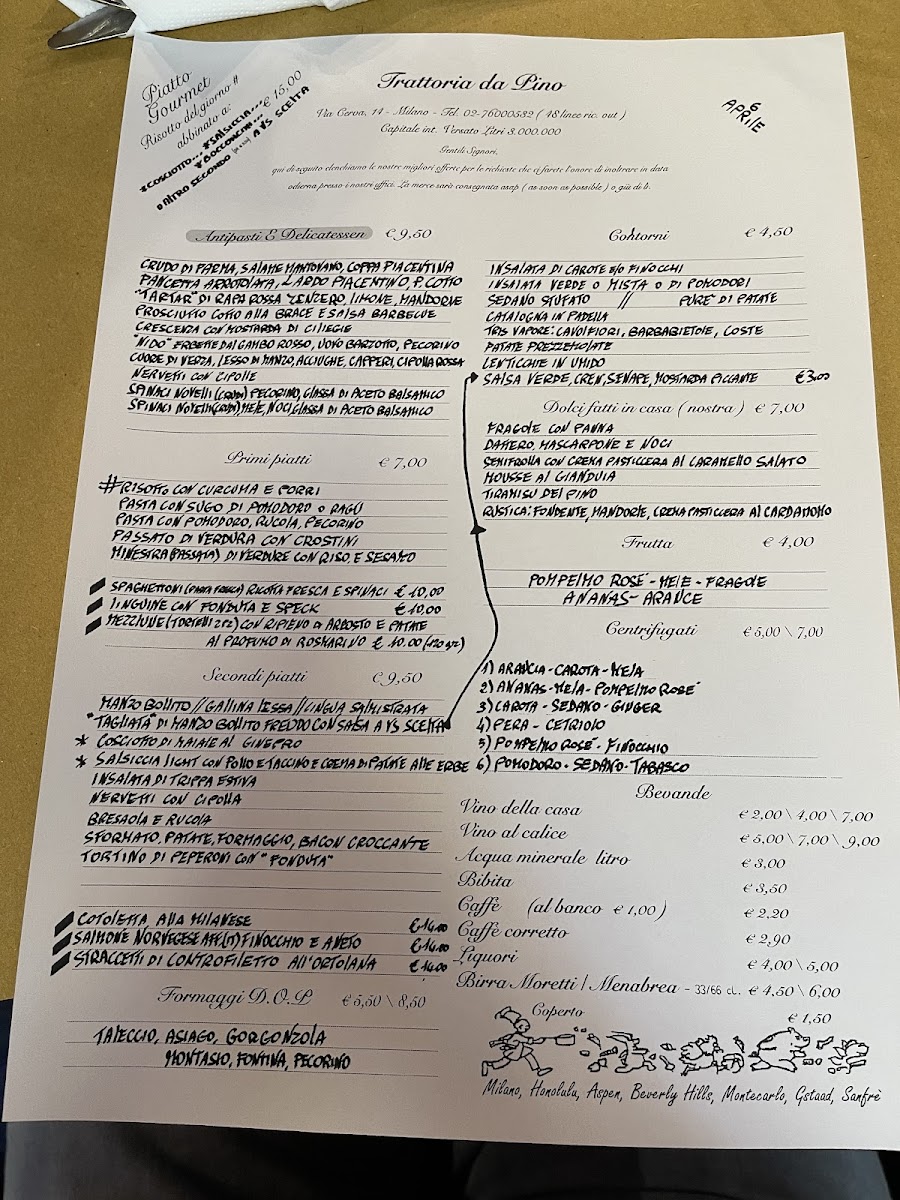 Piatto
Gourmet
Risotto del giorno #
abbinato a: € 15,00
*COSCIOTTO... *SALSICCIA...
*BOCCONCINI...
O ALTRO SECONDO A VS SCELTA
Trattoria da Pino
Via Cerva, 14 - Milano - Tel. 02-76000532 ( 48 linee ric. out )
Capitale int. Versato Litri 3.000.000
6 APRILE
Gentili Signori,
qui di seguito elenchiamo le nostre migliori offerte per le richieste che ci farete l'onore di inoltrare in data
odierna presso i nostri uffici. La merce sarà consegnata asap ( as soon as possible ) o giù di b.
Antipasti E Delicatessen € 9,50
CRUDO DI PARMA, SALAME MANTOVANO, COPPA PIACENTINA
PANCETTA ARROTOLATA, LARDO PIACENTINO, P. COTTO
"TARTAR" DI RAPA ROSSA ZENZERO, LIMONE, MANDORLE
PROSCIUTTO COTTO ALLA BRACE E SALSA BARBECUE
CRESCENZA CON MOSTARDA DI CILIEGIE
"NIDO" ERBETTE DAL GAMBO ROSSO, UOVO BARZOTTO, PECORINO
CUORE DI VERZA, LESSO DI MANZO, ACCIUGHE, CAPPERI, CIPOLLA ROSSA
NERVETTI CON CIPOLLE
SPINACI NOVELLI (CRUDI) PECORINO, GLASSA DI ACETO BALSAMICO
SPINACI NOVELLI (CRUDI), MELE, NOCI, GLASSA DI ACETO BALSAMICO
Primi piatti € 7,00
# RISOTTO CON CURCUMA E PORRI
PASTA CON SUGO DI POMODORO O RAGÙ
PASTA CON POMODORO, RUCOLA, PECORINO
PASSATO DI VERDURA CON CROSTINI
MINESTRA (PASSATA) DI VERDURE CON RISO E SESAMO
SPAGHETTONI (PASTA FRESCA) RICOTTA FRESCA E SPINACI € 10,00
LINGUINE CON FONDUTA E SPECK € 10,00
MEZZLUNE (TORTELLI 2 PZ) CON RIPIENO DI ARROSTO E PATATE
AL PROFUMO DI ROSMARINO € 10.00 (120 gr)
Secondi piatti € 9,50
MANZO BOLLITO // GALLINA LESSA // LINGUA SALMISTRATA
"TAGLIATA" DI MANZO BOLLITO FREDDO CON SALSA A VS SCELTA
* COSCIOTTO DI MAIALE AL GINEPRO
* SALSICCIA LIGHT CON POLLO E TACCHINO E CREMA DI PATATE ALLE ERBE
INSALATA DI TRIPPA ESTIVA
NERVETTI CON CIPOLLA
BRESAOLA E RUCOLA
SFORMATO, PATATE, FORMAGGIO, BACON CROCCANTE
TORTINO DI PEPERONI CON "FONDUTA"
COTOLETTA ALLA MILANESE € 14.00
SALMONE NORVEGESE AFF(TT) FINOCCHIO E ANETO € 14.00
STRACCETTI DI CONTROFILETTO ALL'ORTOLANA € 14.00
Formaggi D.O.P € 5,50 / 8,50
TALECCIO, ASIAGO, GORGONZOLA
MONTASIO, FONTINA, PECORINO
Contorni € 4,50
INSALATA DI CAROTE E/O FINOCCHI
INSALATA VERDE O MISTA O DI POMODORI
SEDANO STUFATO // PURE' DI PATATE
CATALOGNA IN PADELLA
TRIS VAPORE: CAVOLFIORI, BARBABIETOLE, COSTE
PATATE PREZZEMOLATE
LENTICCHIE IN UMIDO
SALSA VERDE, CREN, SENAPE, MOSTARDA PICCANTE € 3,00
Dolci fatti in casa ( nostra ) € 7,00
FRAGOLE CON PANNA
DATTERO, MASCARPONE E NOCI
SEMIFROLLA CON CREMA PASTICCERA AL CARAMELLO SALATO
MOUSSE AL GIANDUIA
TIRAMISU DEL PINO
RUSTICA: FONDENTE, MANDORLE, CREMA PASTICCERA AL CARDAMOMO
Frutta € 4,00
POMPELMO ROSÉ - MELE - FRAGOLE
ANANAS - ARANCE
Centrifugati € 5,00 \ 7,00
1) ARANCIA - CAROTA - MELA
2) ANANAS - MELA - POMPELMO ROSE'
3) CAROTA - SEDANO - GINGER
4) PERA - CETRIOLO
5) POMPELMO ROSE' - FINOCCHIO
6) POMODORO - SEDANO - TABASCO
Bevande
Vino della casa € 2,00 \ 4,00 \ 7,00
Vino al calice € 5,00 \ 7,00 \ 9,00
Acqua minerale litro € 3,00
Bibita € 3,50
Caffè (al banco € 1,00 ) € 2,20
Caffè corretto € 2,90
Liquori € 4,00 \ 5,00
Birra Moretti / Menabrea - 33/66 cl. € 4,50 \ 6,00
Coperto € 1,50
Milano, Honolulu, Aspen, Beverly Hills, Montecarlo, Gstaad, Sanfrè